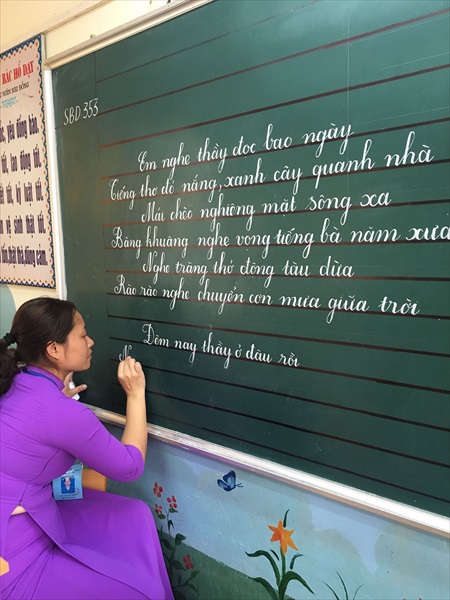 BÁC HỒ DẠY
NHI ĐỒNG
yêu đồng bào.
tốt, lao động tốt.
tốt, kỷ luật tốt.
vệ sinh thật tốt
thật thà dũng cảm.
SBD 353
Em nghe thầy đọc bao ngày
Tiếng thơ đỏ nắng, xanh cây quanh nhà
Mái chèo nghiêng mặt sông xa
Bâng khuâng nghe vọng tiếng bà năm xưa
Nghe trăng thở động tàu dừa
Rào rào nghe chuyển cơn mưa giữa trời
Đêm nay thầy ở đâu rồi
N